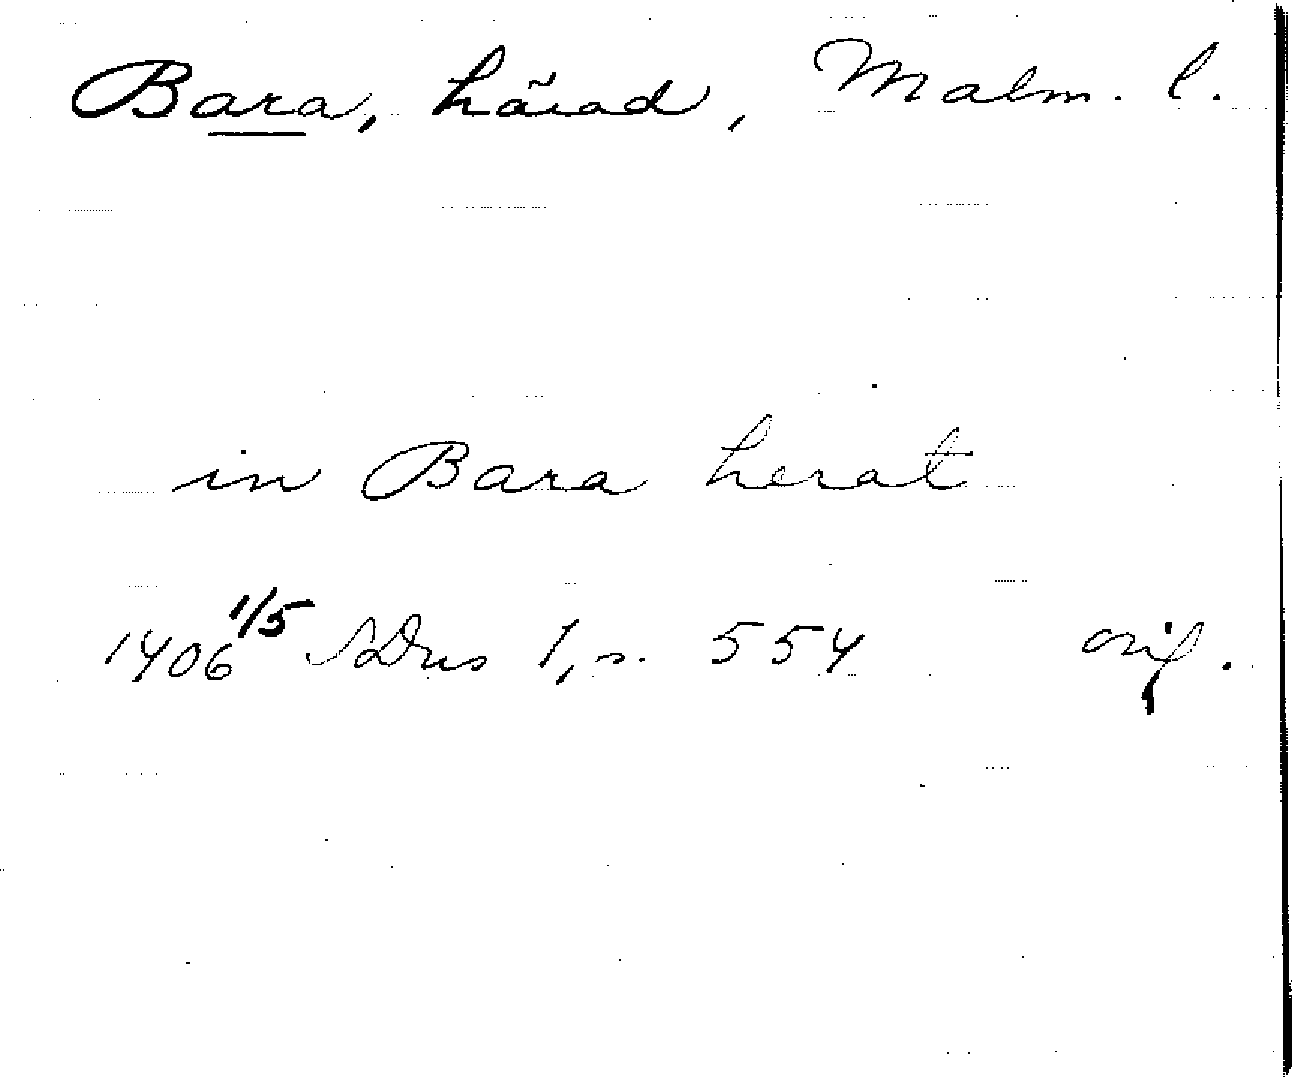 Bara, härad, Malm. l.
in Bara herat
1406 1/5 SDns 1, s. 554 orig.